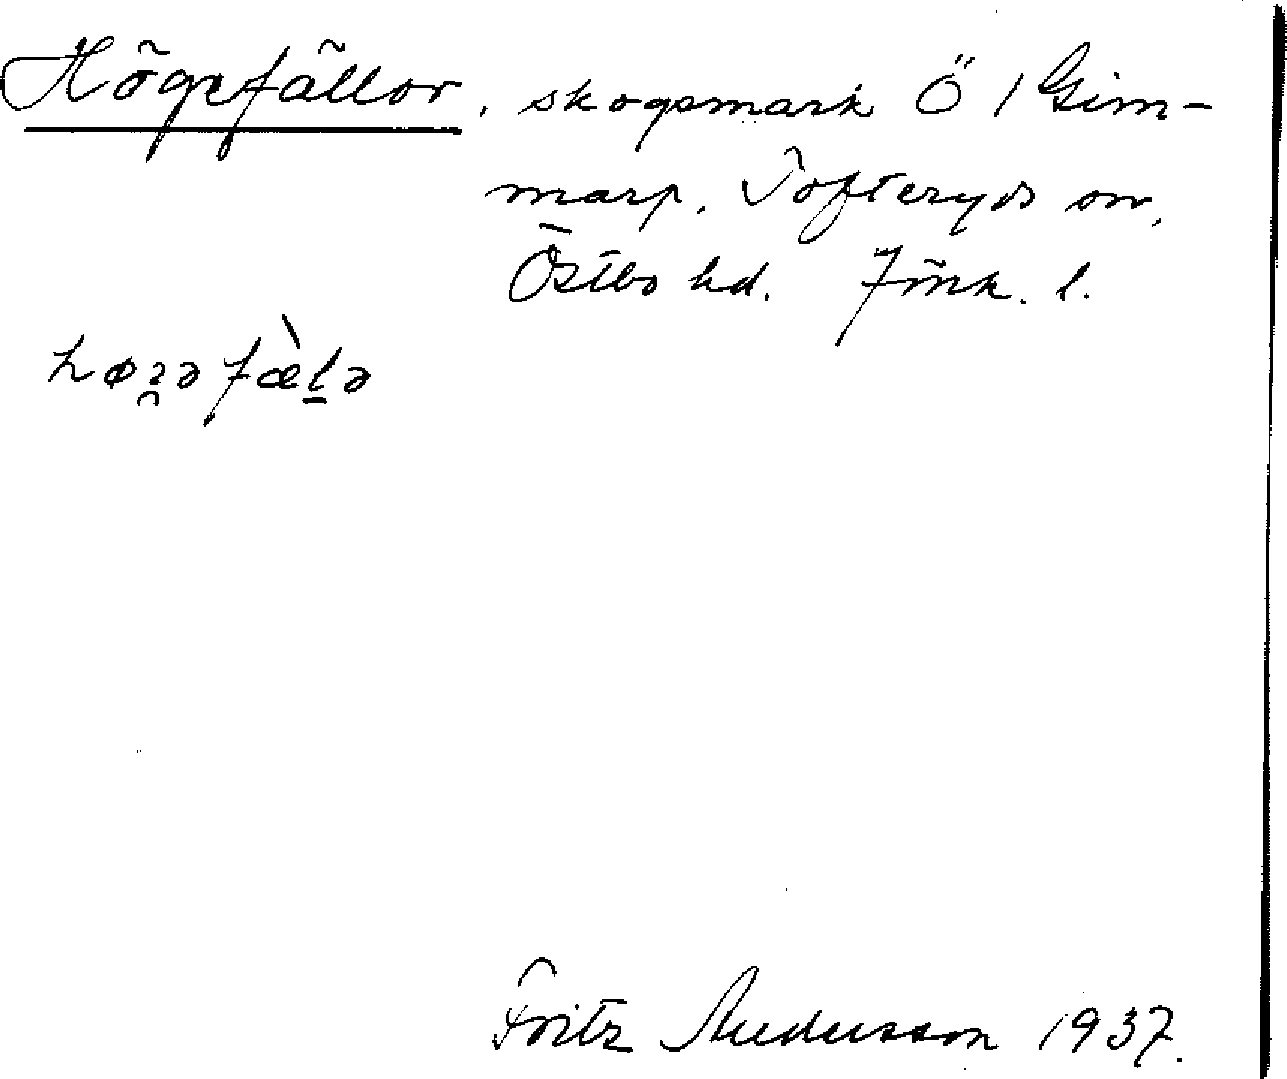 Högefällor, skogsmark Ö / Gim-
marp, Tofteryds sn,
Östbo hd. Jönk. l.
høʒəfæ̀lə
Fritz Andersson 1937.